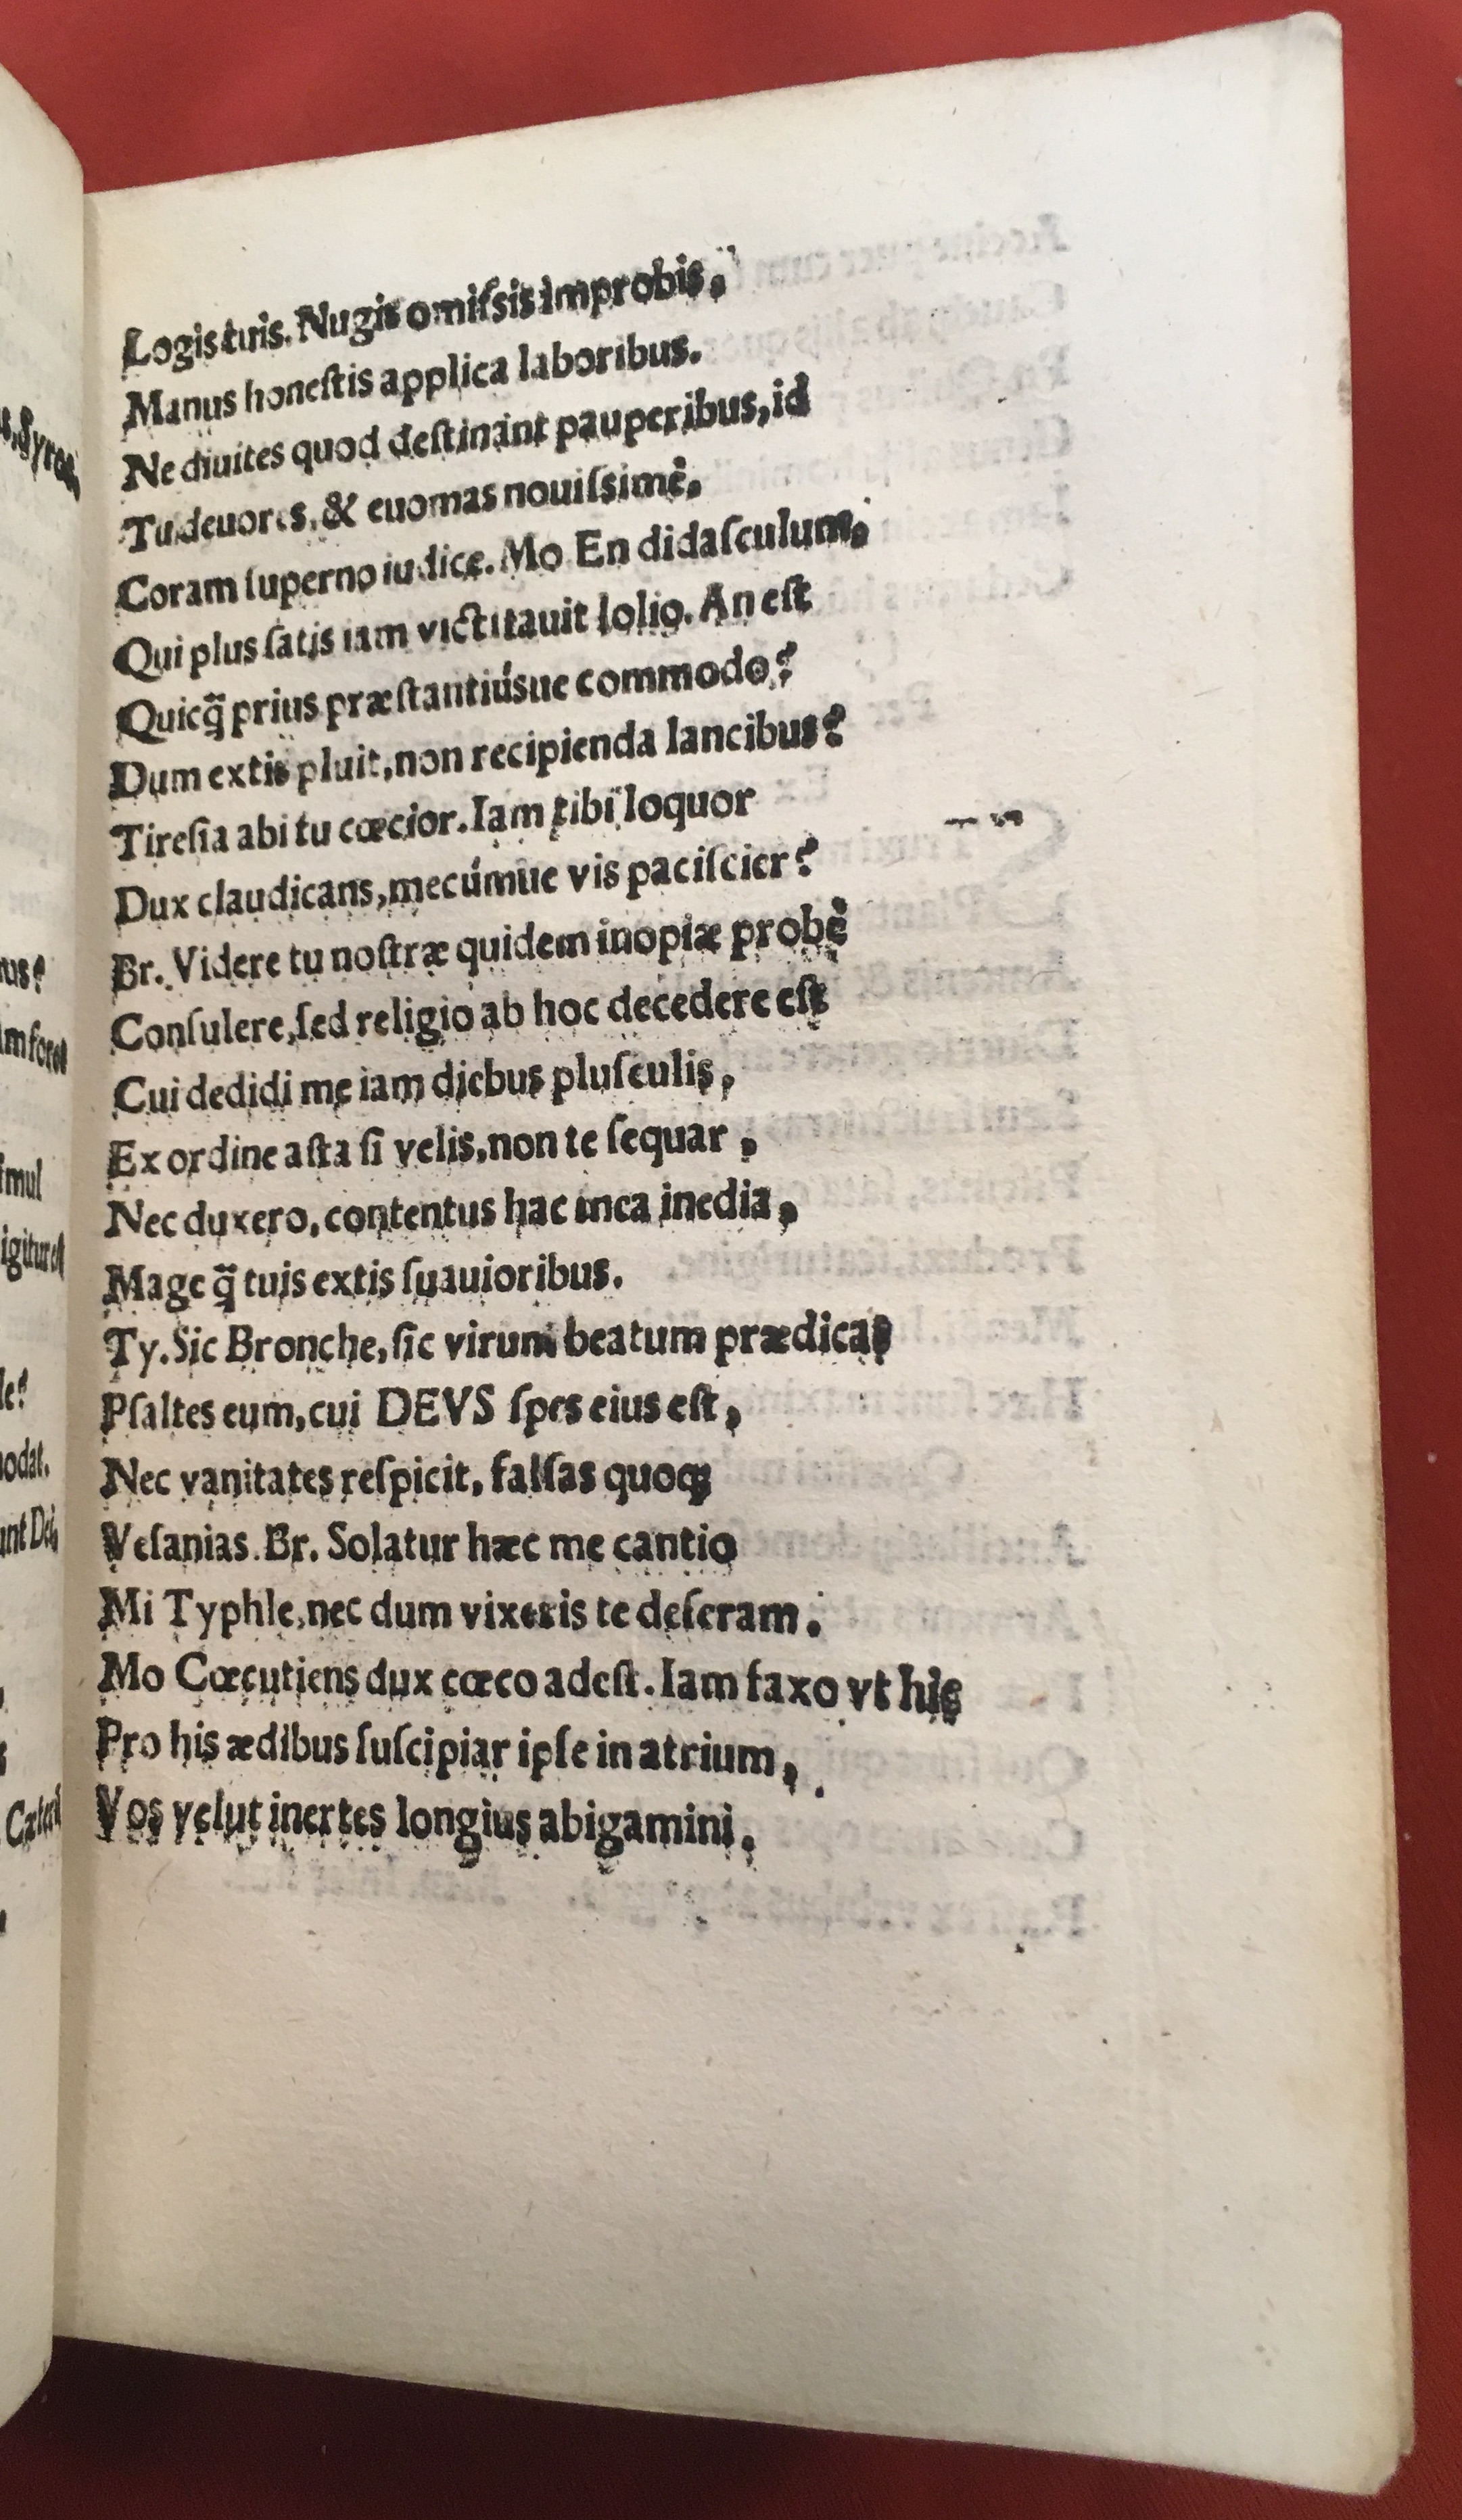 Logis tuis. Nugis omiſsis improbis,
Manus honeſtis applica laboribus.
Ne diuites quod deſtinant pauperibus, id
Tu deuores, & euomas nouiſsimè,
Coram ſuperno iudice. Mo En didaſculum,
Qui plus ſatis iam victitauit lolio. An eſt
Quicq̃ prius præſtantiúsue commodo?
Dum extis pluit, non recipienda lancibus?
Tireſia abi tu cœcior. Iam tibi loquor
Dux claudicans, mecúmue vis paciſcier?
Br. Videre tu noſtræ quidem inopiæ probè
Conſulere, ſed religio ab hoc decedere eſt
Cui dedidi me iam diebus pluſculis,
Ex ordine aſta ſi velis, non te ſequar,
Nec duxero, contentus hac mea inedia,
Mage q̃ tuis extis ſuauioribus.
Ty. Sic Bronche, ſic virum beatum prædicas
Pſaltes eum, cui DEVS ſpes eius eſt,
Nec vanitates reſpicit, falſas quoq;
Veſanias. Br. Solatur hæc me cantio
Mi Typhle, nec dum vixeris te deſeram.
Mo Cœcutiens dux cœco adeſt. Iam faxo vt hic
Pro his ædibus ſuſcipiar ipſe in atrium,
Vos velut inertes longius abigamini,